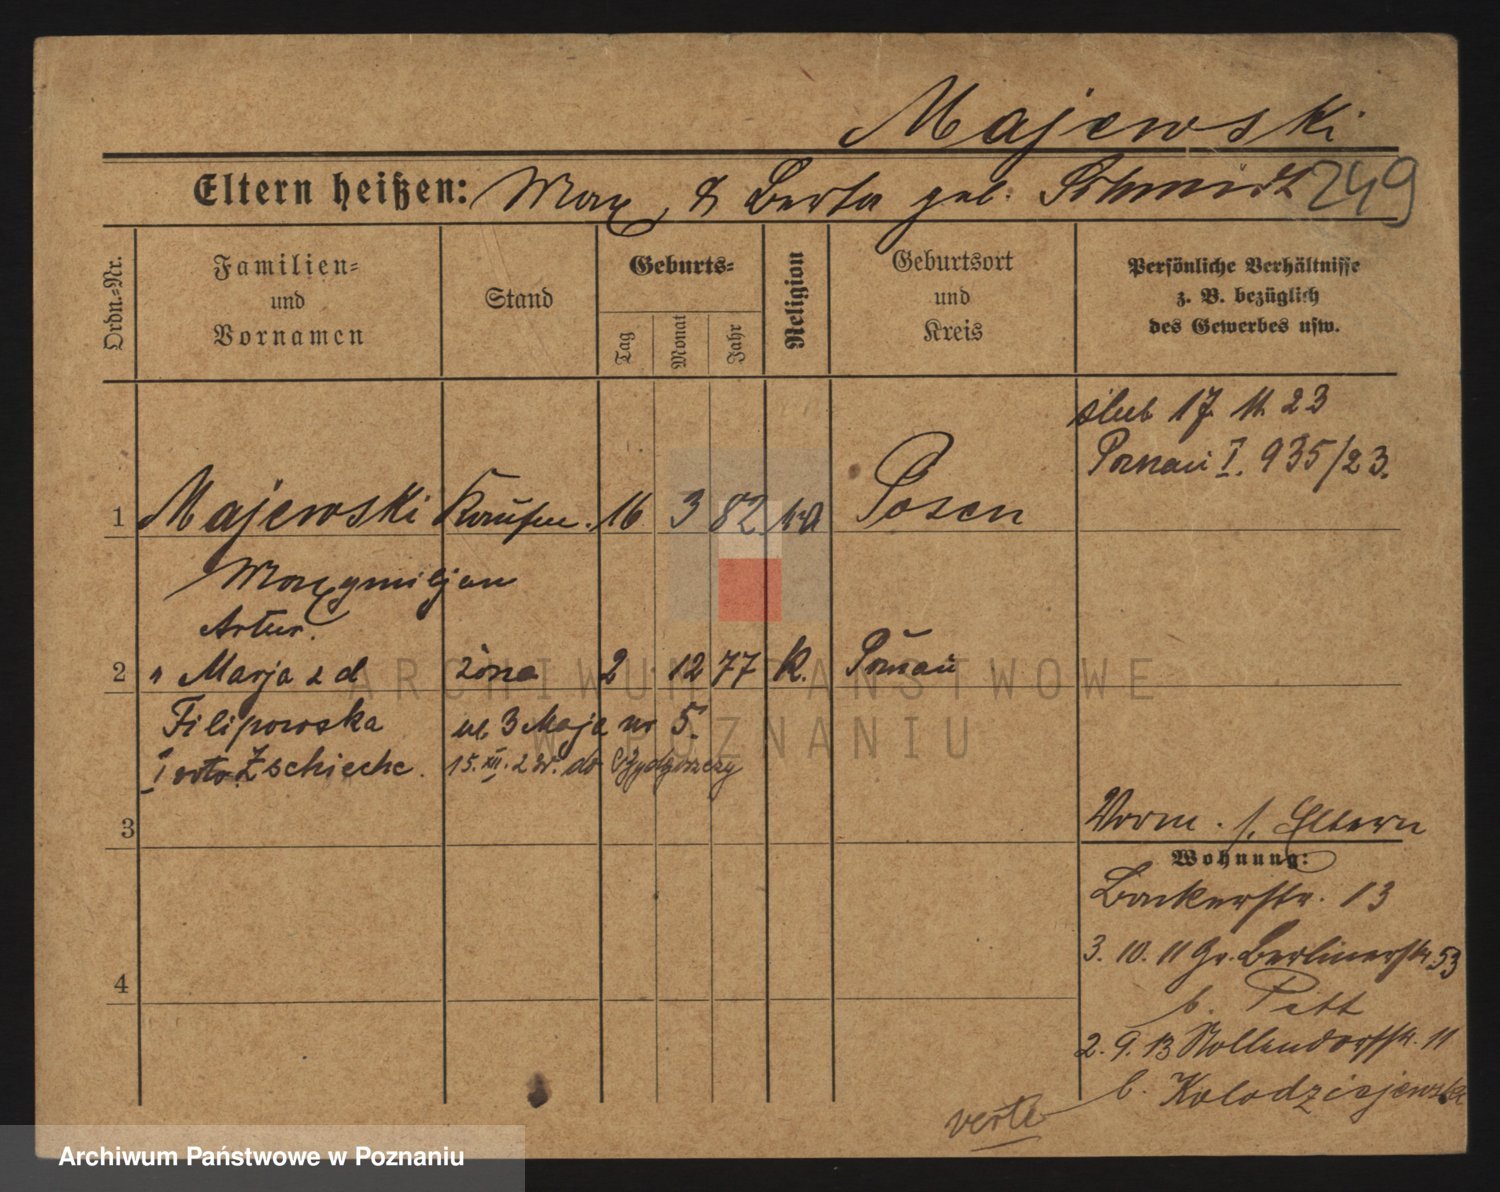 Majewski
249
Eltern heißen: Max, & Berta geb. Schmidt
Ordn.=Nr.
Familien=
und
Vornamen
Stand
Geburts=
Tag
Monat
Jahr
Religion
Geburtsort
und
Kreis
Persönliche Verhältnisse
z. B. bezüglich
des Gewerbes usw.
ślub 17. 11. 23
Poznań I. 935/23.
1 Majewski Kaufm. 16 3 82 ka Posen
Maxymiljan
Artur.
2 " Marja z d żona 2 12 77 k. Poznań
Filipowska ul 3 Maja nr 5.
I voto Zschieche. 15. XII. 28. do Bydgoszczy
3
4
Vorm. s. Eltern
Wohnung:
Bäckerstr. 13
3. 10. 11 Gr. Berlinerstr. 53
b. Pett
2. 9. 13 Nollendorfstr. 11
b. Kolodziejewska
verte
ARCHIWUM PAŃSTWOWE
W POZNANIU
Archiwum Państwowe w Poznaniu